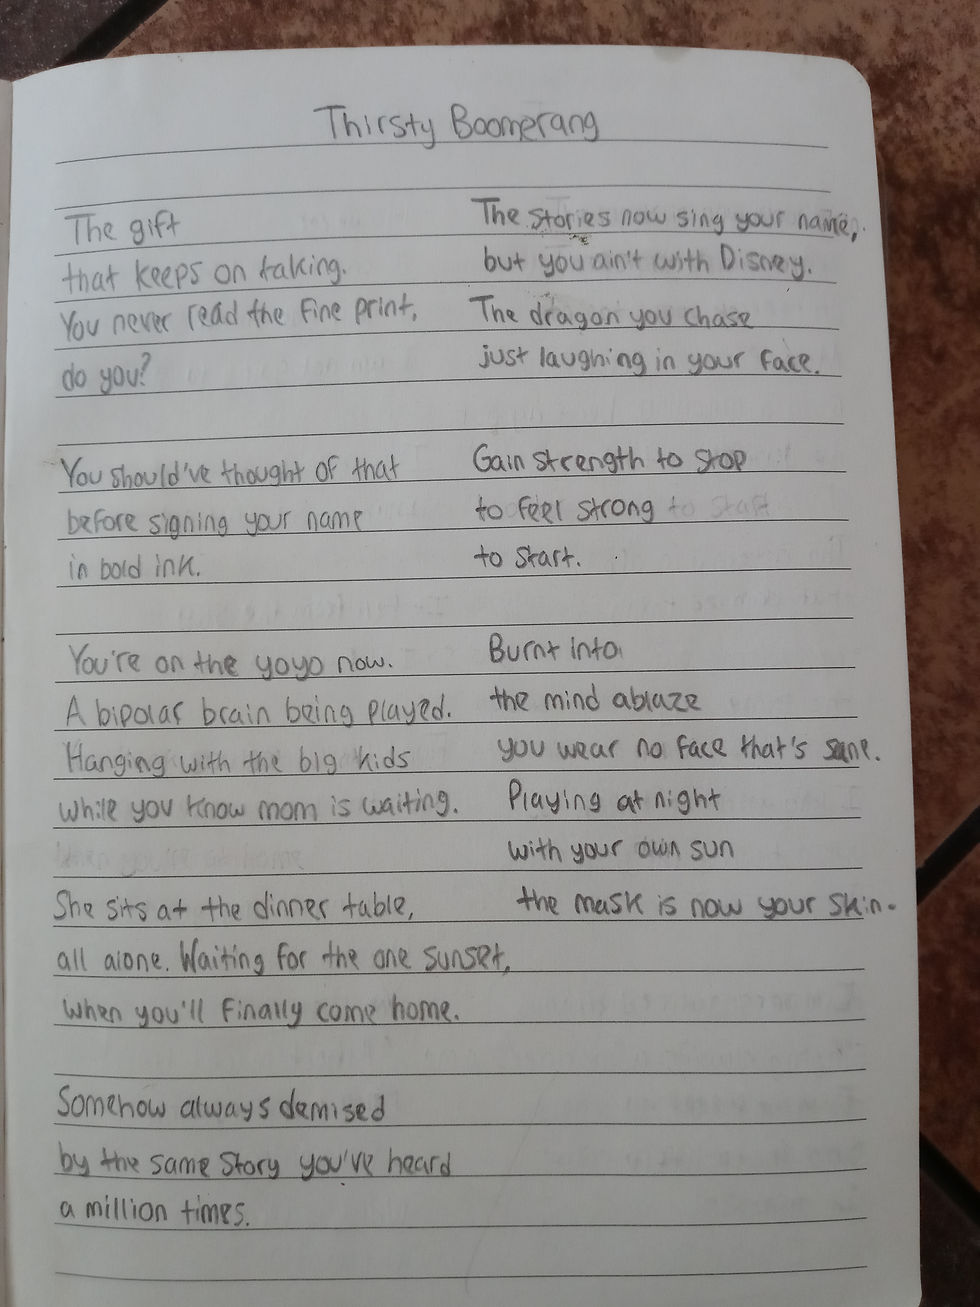 Thirsty Boomerang
The gift
that keeps on taking.
You never read the fine print,
do you?
You should've thought of that
before signing your name
in bold ink.
You're on the yoyo now.
A bipolar brain being played.
Hanging with the big kids
while you know mom is waiting.
She sits at the dinner table,
all alone. Waiting for the one sunset,
when you'll finally come home.
Somehow always demised
by the same story you've heard
a million times.
The stories now sing your name,
but you ain't with Disney.
The dragon you chase
just laughing in your face.
Gain strength to stop
to feel strong to start
to start.
Burnt into
the mind ablaze
you wear no face that's sane.
Playing at night
with your own sun
the mask is now your skin.